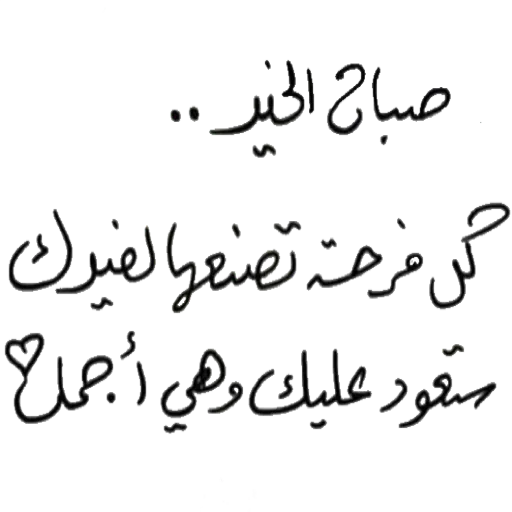 صباح الخير ..
كل فرحة تصنعها لغيرك
ستعود عليك وهي أجمل♡